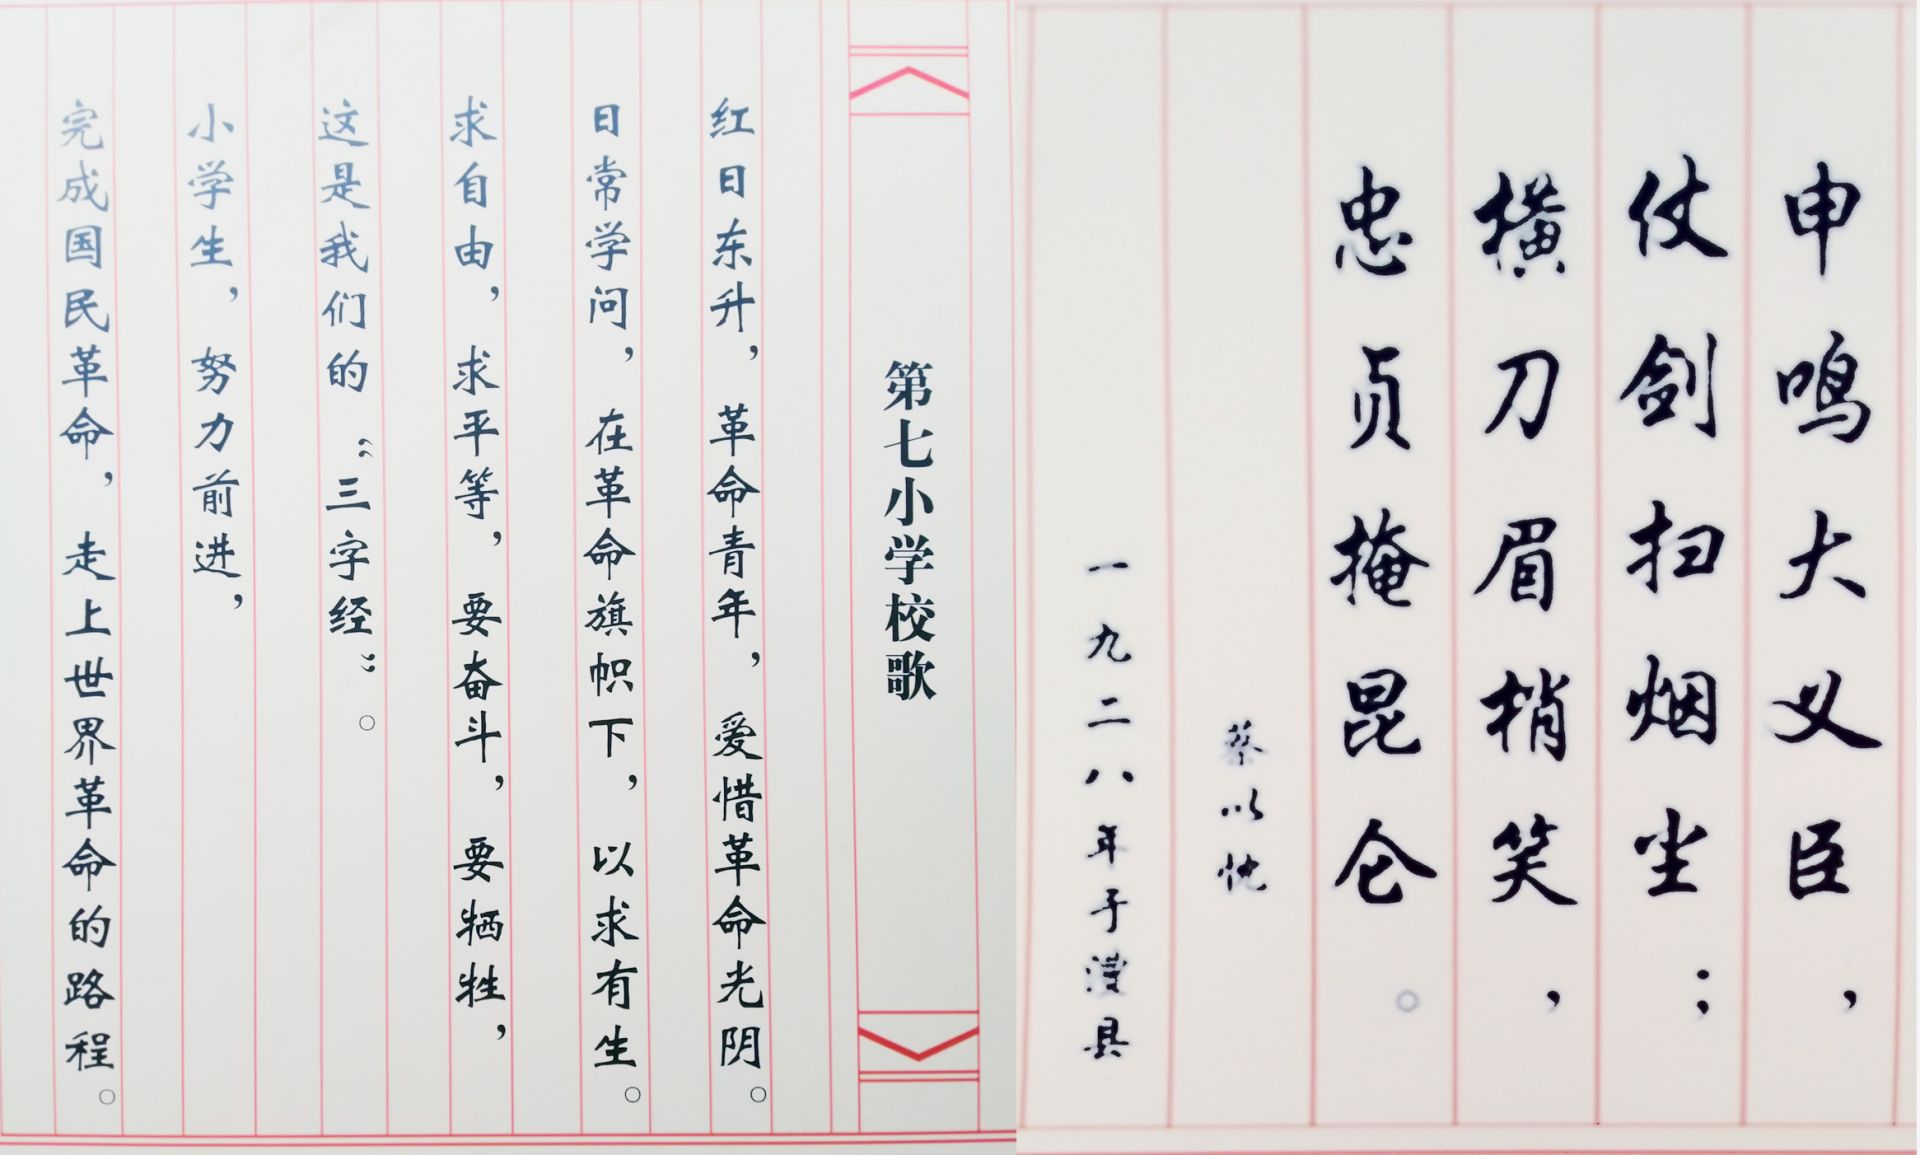 第七小学校歌
红日东升，革命青年，爱惜革命光阴。
日常学问，在革命旗帜下，以求有生。
求自由，求平等，要奋斗，要牺牲，
这是我们的“三字经”。
小学生，努力前进，
完成国民革命，走上世界革命的路程。
申鸣大义臣，
仗剑扫烟尘；
横刀眉梢笑，
忠贞掩昆仑。
蔡以忱
一九二八年于澧县